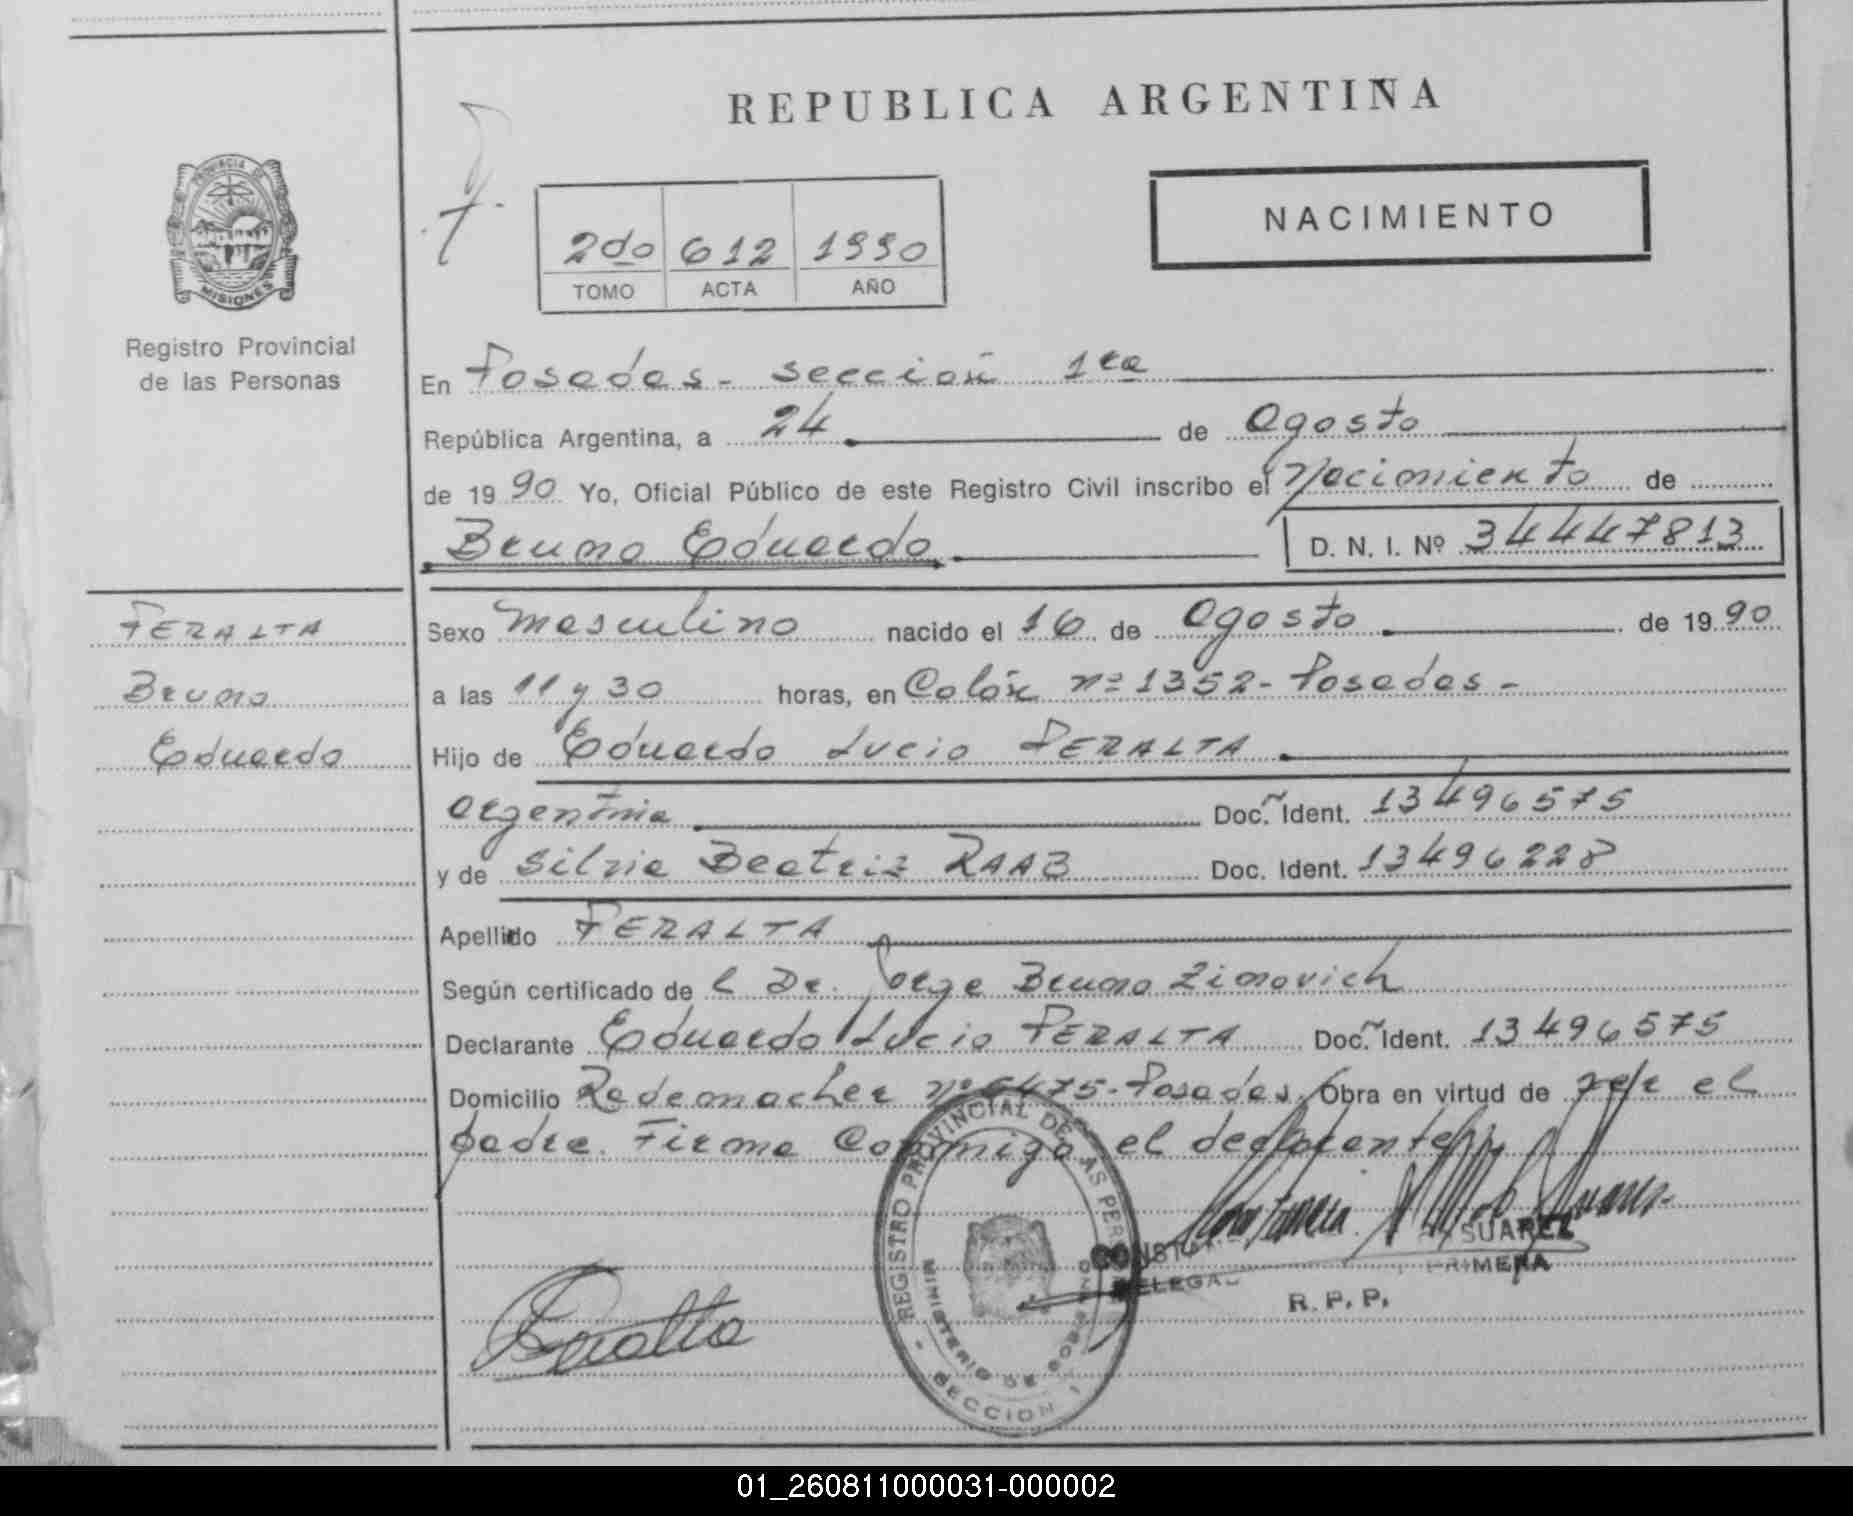 REPUBLICA ARGENTINA
PROVINCIA DE
MISIONES
Registro Provincial
de las Personas
2do 612 1990
TOMO ACTA AÑO
NACIMIENTO
En Posadas - sección 1ra
República Argentina, a 24 de Agosto
de 1990 Yo, Oficial Público de este Registro Civil inscribo el Nacimiento de
Bruno Eduardo D. N. I. Nº 34447813
PERALTA
Bruno
Eduardo
Sexo masculino nacido el 16 de Agosto de 1990
a las 11 y 30 horas, en Colón nº 1352 - Posadas -
Hijo de Eduardo Lucio PERALTA
argentina Doc. Ident. 13496575
y de Silvia Beatriz RAAB Doc. Ident. 13496228
Apellido PERALTA
Según certificado de l Dr. Jorge Bruno Zimovich
Declarante Eduardo Lucio PERALTA Doc. Ident. 13496575
Domicilio Rademacher nº 6475 - Posadas. Obra en virtud de ser el
padre. Firma Conmigo el declarante
REGISTRO PROVINCIAL DE LAS PER
MINISTERIO DE GOBIERNO
SECCION 1
SUAREZ
PRIMERA
R. P. P.
Peralta
01_260811000031-000002